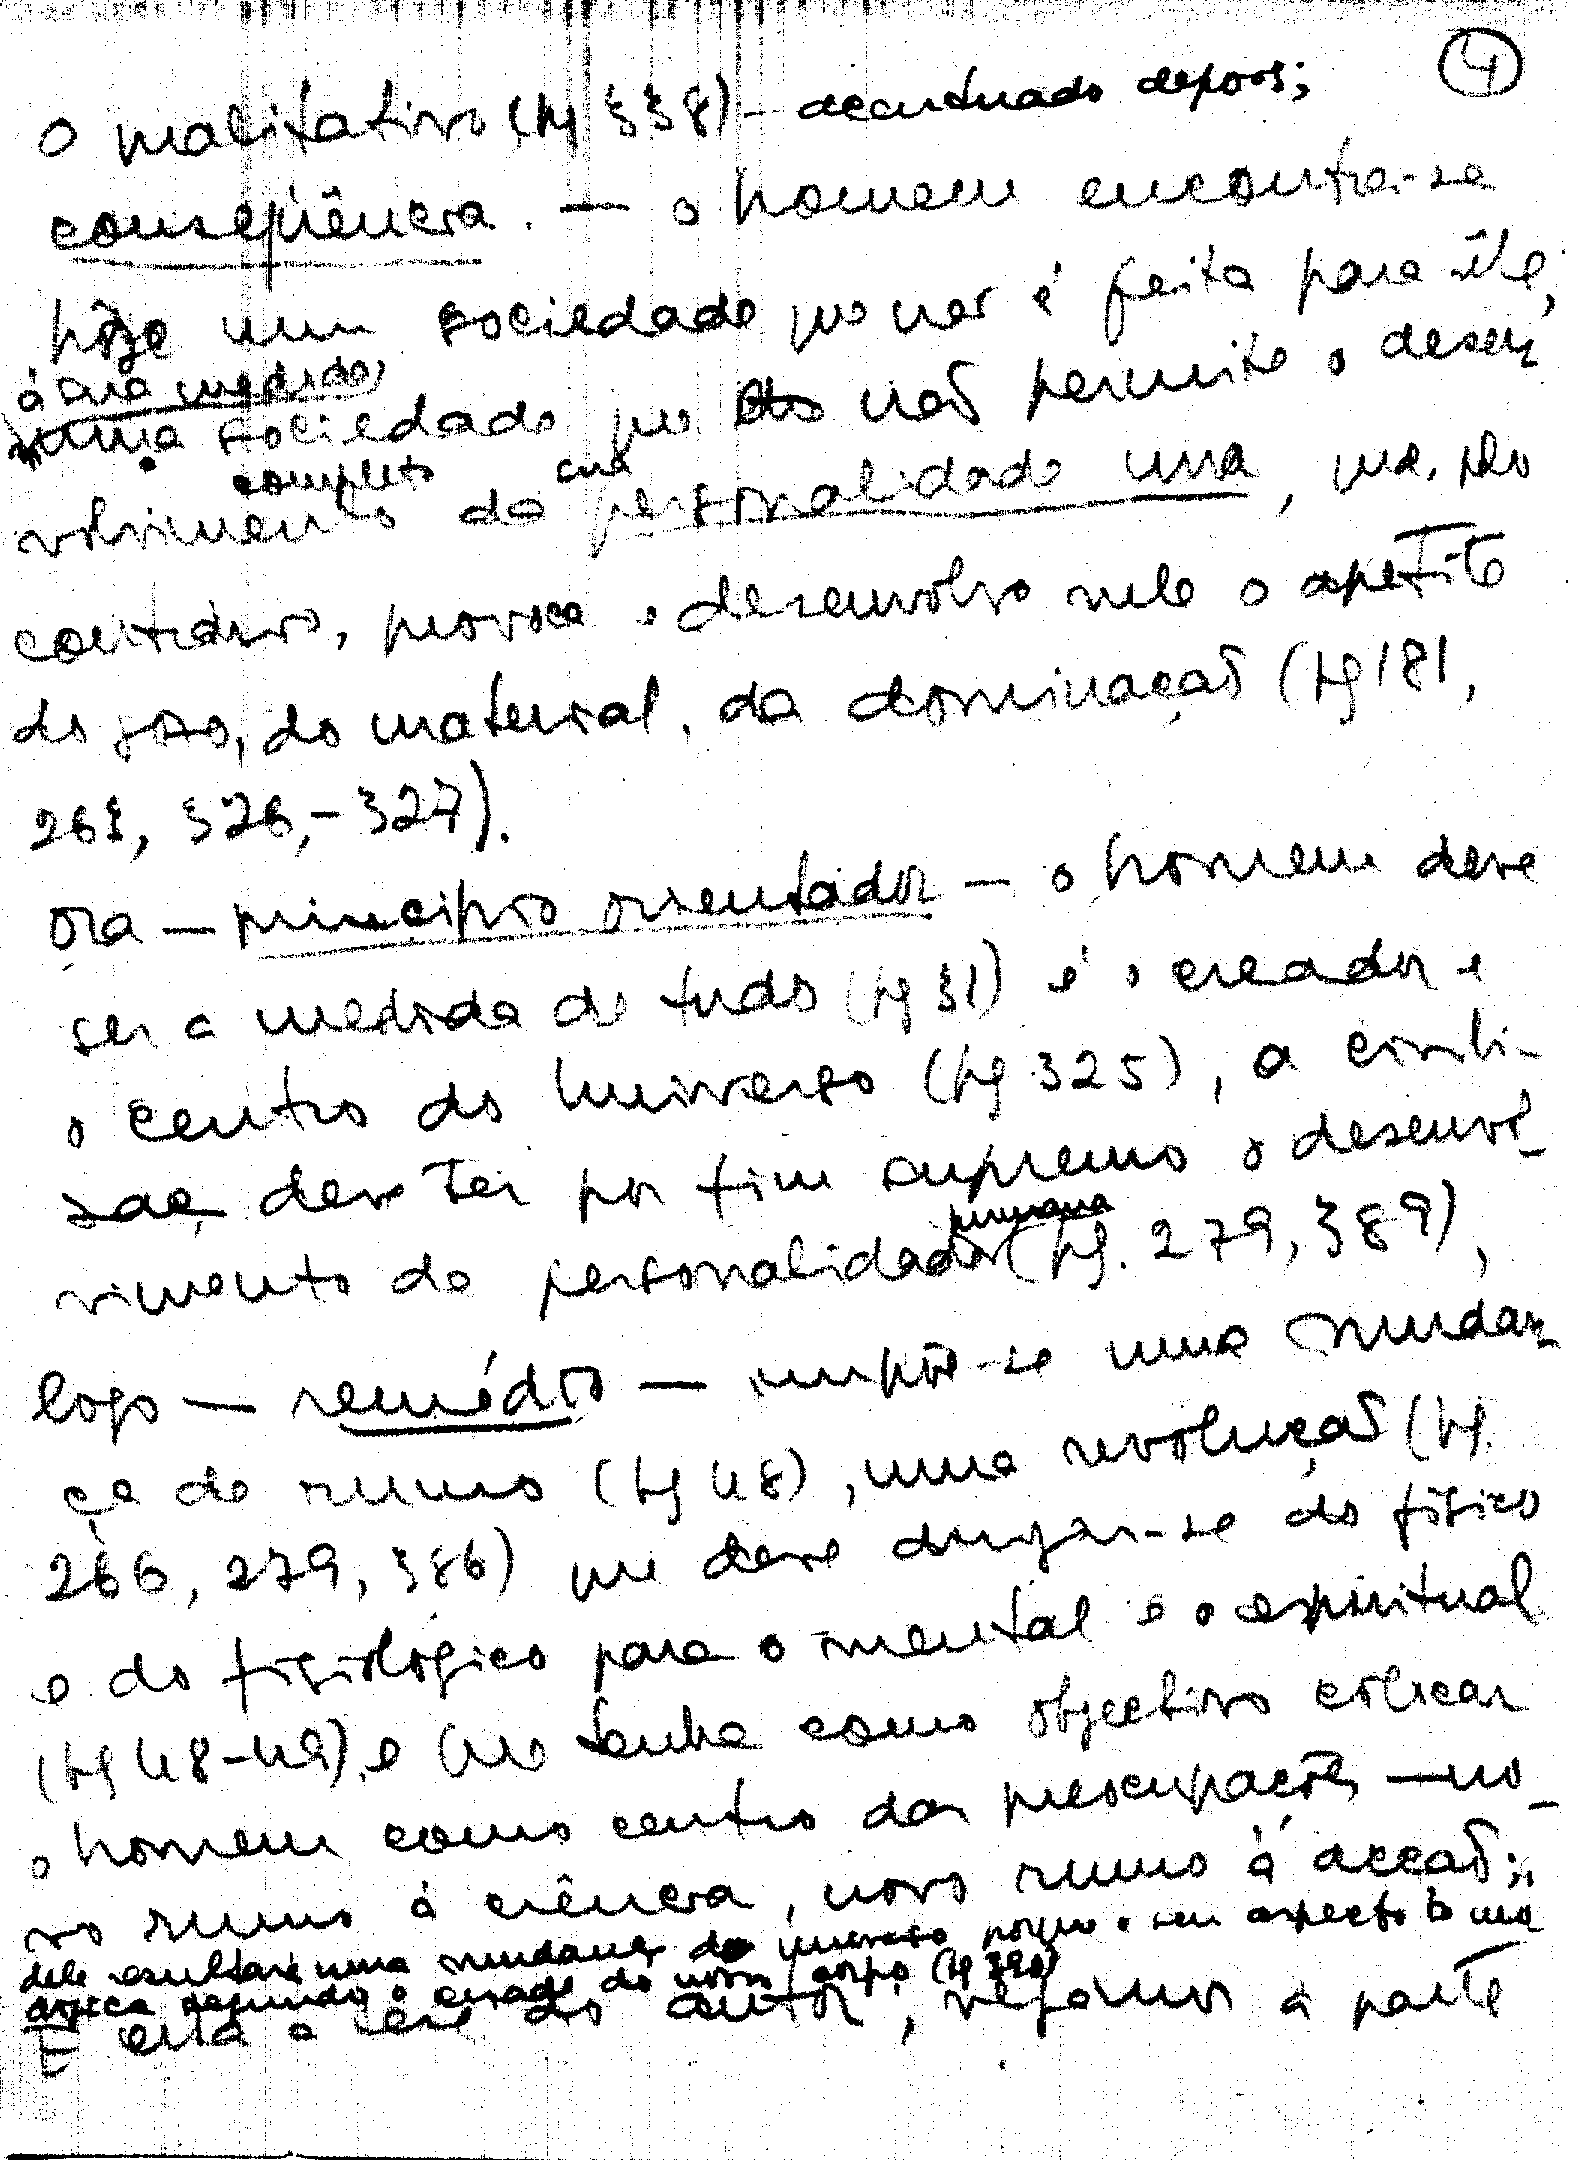 4
o qualitativo (pg 338) - acentuado depois;
conseqüência. — o homem encontra-se
hôje numa sociedade que não é feita para êle,
à sua medida,
numa sociedade que não permite o desen
completo sua
volvimento da personalidade una, mas, pelo
contrário, provoca e desenvolve nele o apetite
do gozo, do material, da dominação (pg 181,
263, 326,-327).
Ora — princípio orientador — o homem deve
ser a medida de tudo (pg 31) é o creador e
o centro do Universo (pg 325), a civili-
zação deve ter por fim supremo o desenvol-
humana
vimento da personalidade (pg. 279, 389),
logo — remédio — impõe-se uma mudan-
ça de rumo (pg 48), uma revolução (pg.
266, 279, 386) que deve dirigir-se do físico
e do fisiológico para o mental e o espiritual
(pg 48-49), e que tenha como objectivo colocar
o homem como centro das preocupações — no-
vo rumo à ciência, novo rumo à acção;
dele resultará uma mudança do universo porque o seu aspecto
segundo o estado do nosso corpo (pg 390)
É esta a tese do autor, vejamos a parte